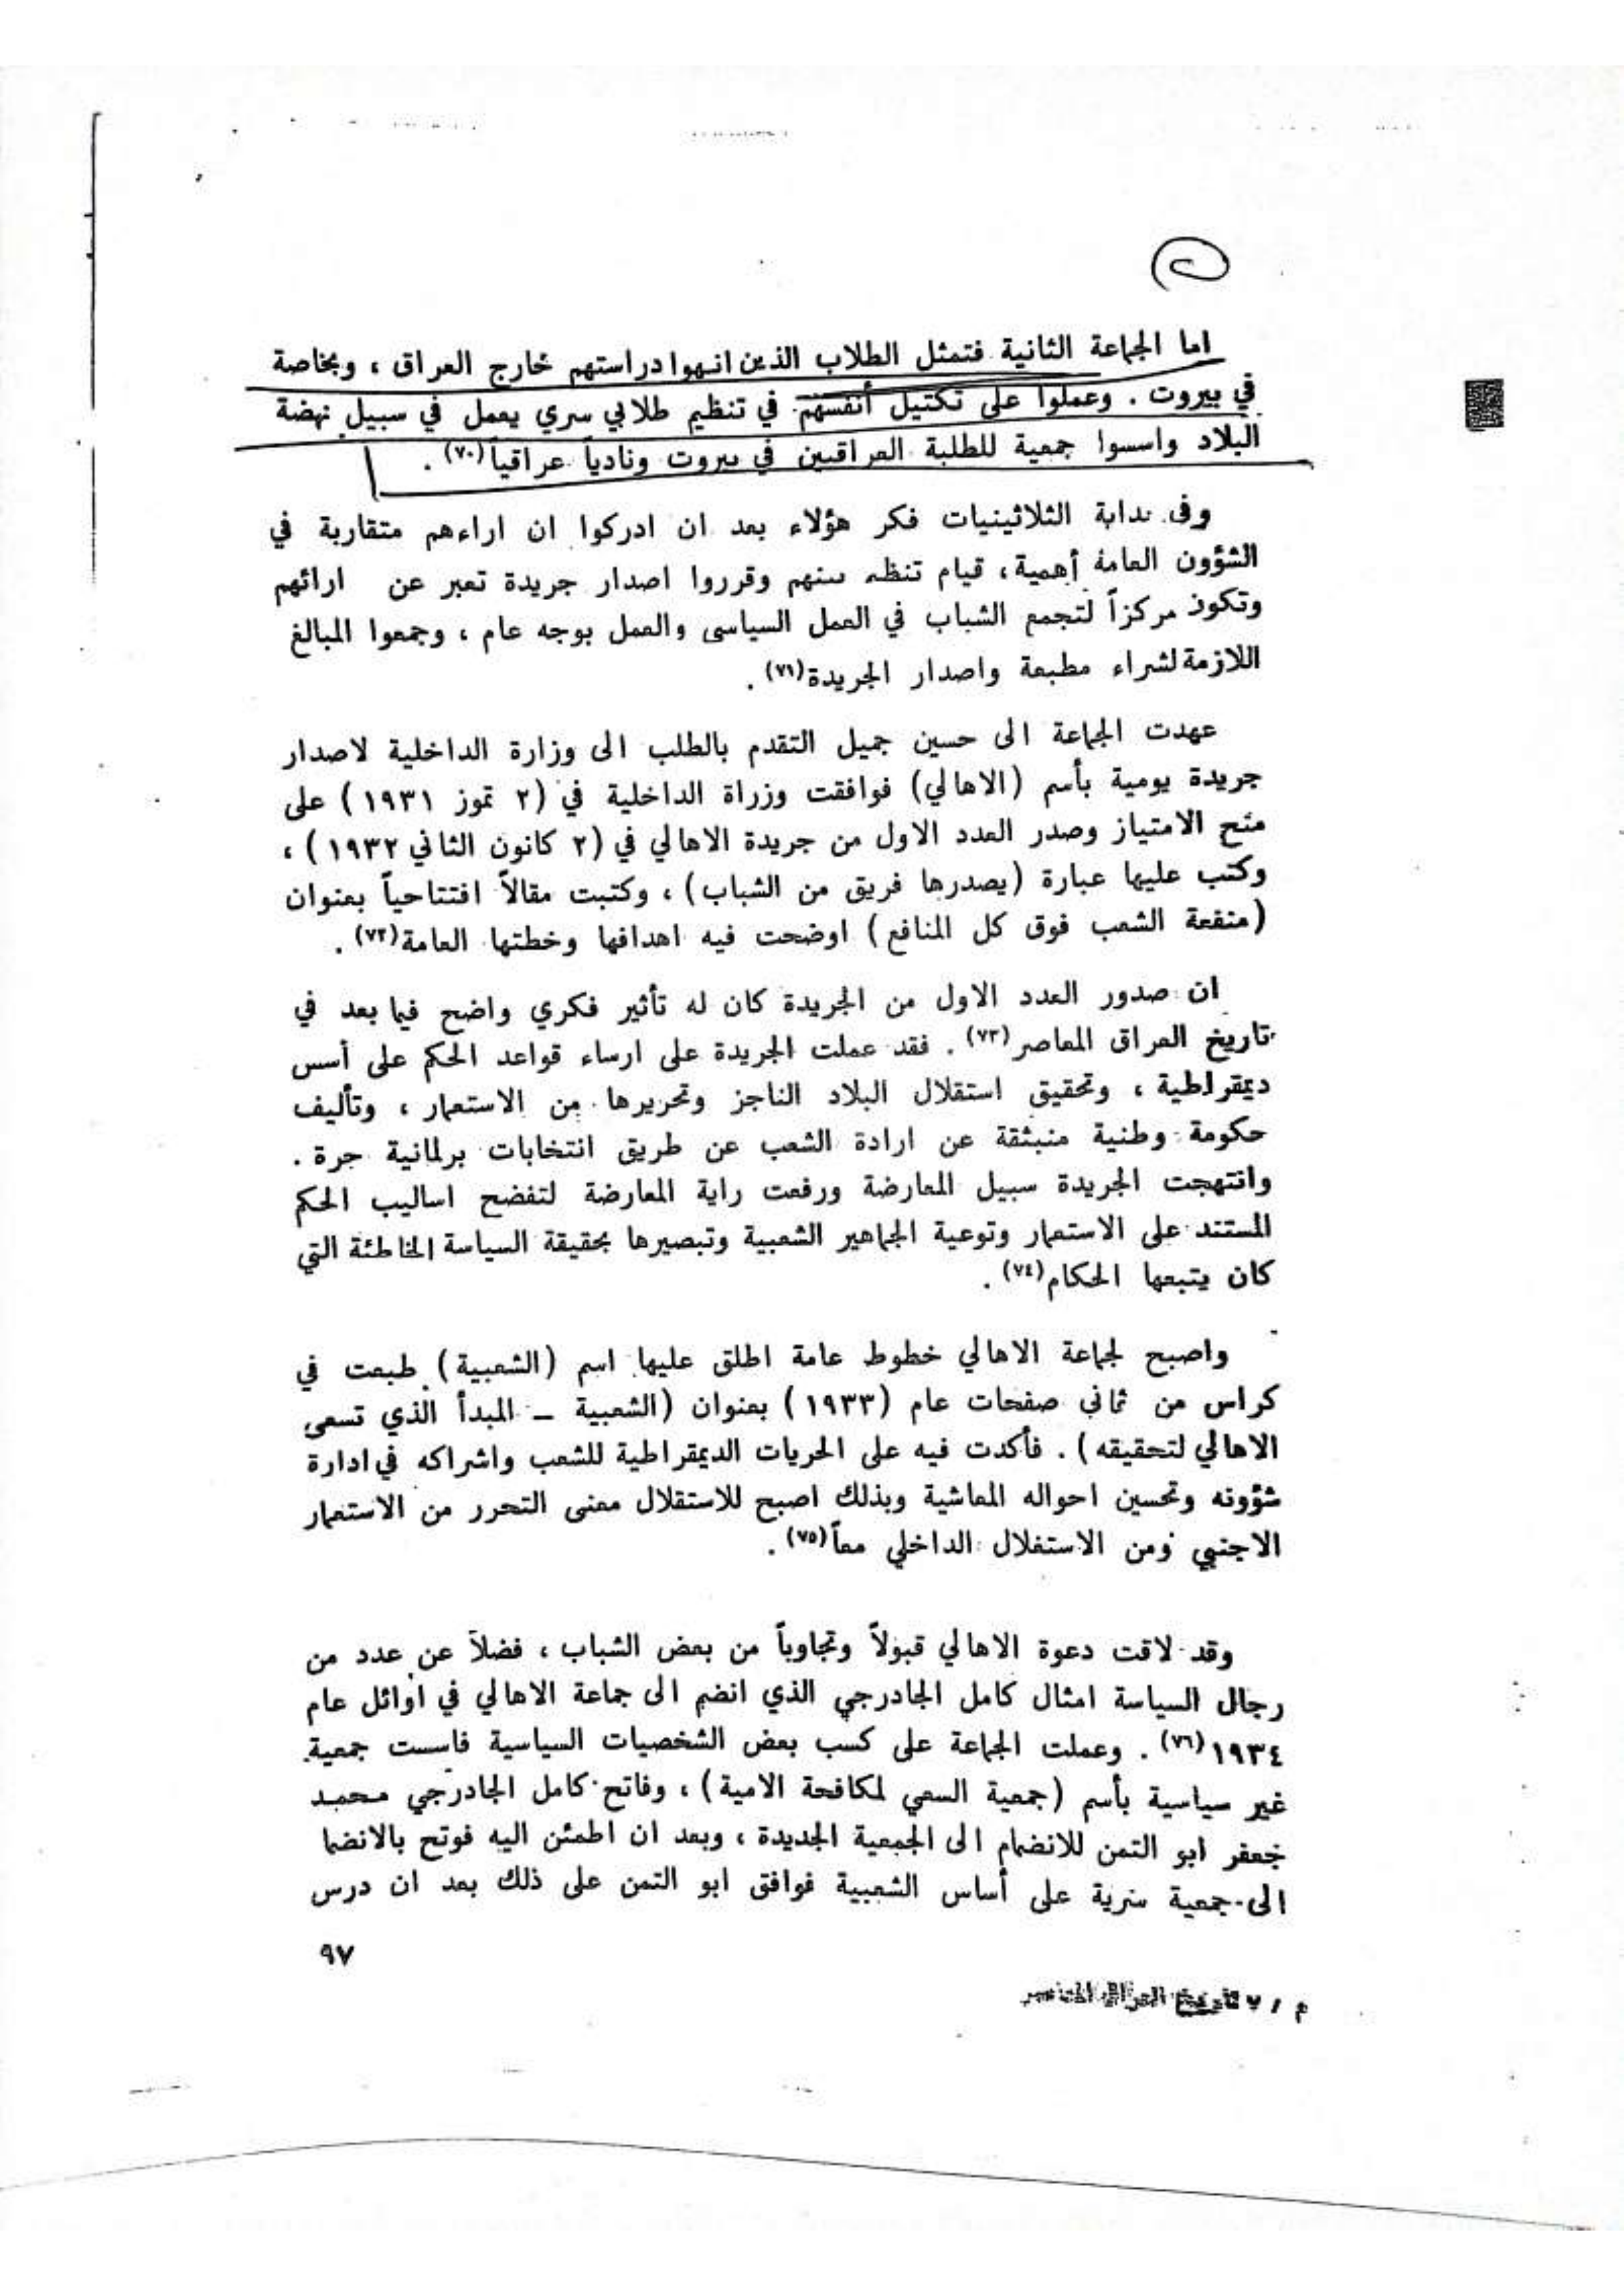 اما الجماعة الثانية فتمثل الطلاب الذين انهوا دراستهم خارج العراق ، وبخاصة
في بيروت . وعملوا على تكتيل أنفسهم في تنظيم طلابي سري يعمل في سبيل نهضة
البلاد واسسوا جمعية للطلبة العراقيين في بيروت ونادياً عراقياً(٧٠) .
وفي بداية الثلاثينيات فكر هؤلاء بعد ان ادركوا ان اراءهم متقاربة في
الشؤون العامة أهمية ، قيام تنظيم بينهم وقرروا اصدار جريدة تعبر عن ارائهم
وتكون مركزاً لتجمع الشباب في العمل السياسي والعمل بوجه عام ، وجمعوا المبالغ
اللازمة لشراء مطبعة واصدار الجريدة(٧١) .
عهدت الجماعة الى حسين جميل التقدم بالطلب الى وزارة الداخلية لاصدار
جريدة يومية بأسم (الاهالي) فوافقت وزراة الداخلية في (٢ تموز ١٩٣١) على
منح الامتياز وصدر العدد الاول من جريدة الاهالي في (٢ كانون الثاني ١٩٣٢) ،
وكتب عليها عبارة (يصدرها فريق من الشباب) ، وكتبت مقالاً افتتاحياً بعنوان
(منفعة الشعب فوق كل المنافع) اوضحت فيه اهدافها وخطتها العامة(٧٢) .
ان صدور العدد الاول من الجريدة كان له تأثير فكري واضح فيما بعد في
تاريخ العراق المعاصر(٧٣) . فقد عملت الجريدة على ارساء قواعد الحكم على أسس
ديمقراطية ، وتحقيق استقلال البلاد الناجز وتحريرها من الاستعمار ، وتأليف
حكومة وطنية منبثقة عن ارادة الشعب عن طريق انتخابات برلمانية حرة .
وانتهجت الجريدة سبيل المعارضة ورفعت راية المعارضة لتفضح اساليب الحكم
المستند على الاستعمار وتوعية الجماهير الشعبية وتبصيرها بحقيقة السياسة الخاطئة التي
كان يتبعها الحكام(٧٤) .
واصبح لجماعة الاهالي خطوط عامة اطلق عليها اسم (الشعبية) طبعت في
كراس من ثماني صفحات عام (١٩٣٣) بعنوان (الشعبية ــ المبدأ الذي تسعى
الاهالي لتحقيقه) . فأكدت فيه على الحريات الديمقراطية للشعب واشراكه في ادارة
شؤونه وتحسين احواله المعاشية وبذلك اصبح للاستقلال معنى التحرر من الاستعمار
الاجنبي ومن الاستغلال الداخلي معاً(٧٥) .
وقد لاقت دعوة الاهالي قبولاً وتجاوباً من بعض الشباب ، فضلاً عن عدد من
رجال السياسة امثال كامل الجادرجي الذي انضم الى جماعة الاهالي في اوائل عام
١٩٣٤(٧٦) . وعملت الجماعة على كسب بعض الشخصيات السياسية فاسست جمعية
غير سياسية بأسم (جمعية السعي لمكافحة الامية) ، وفاتح كامل الجادرجي محمد
جعفر ابو التمن للانضمام الى الجمعية الجديدة ، وبعد ان اطمئن اليه فوتح بالانضما
الى جمعية سرية على أساس الشعبية فوافق ابو التمن على ذلك بعد ان درس
٩٧
م / ٧ تاريخ العراق المعاصر